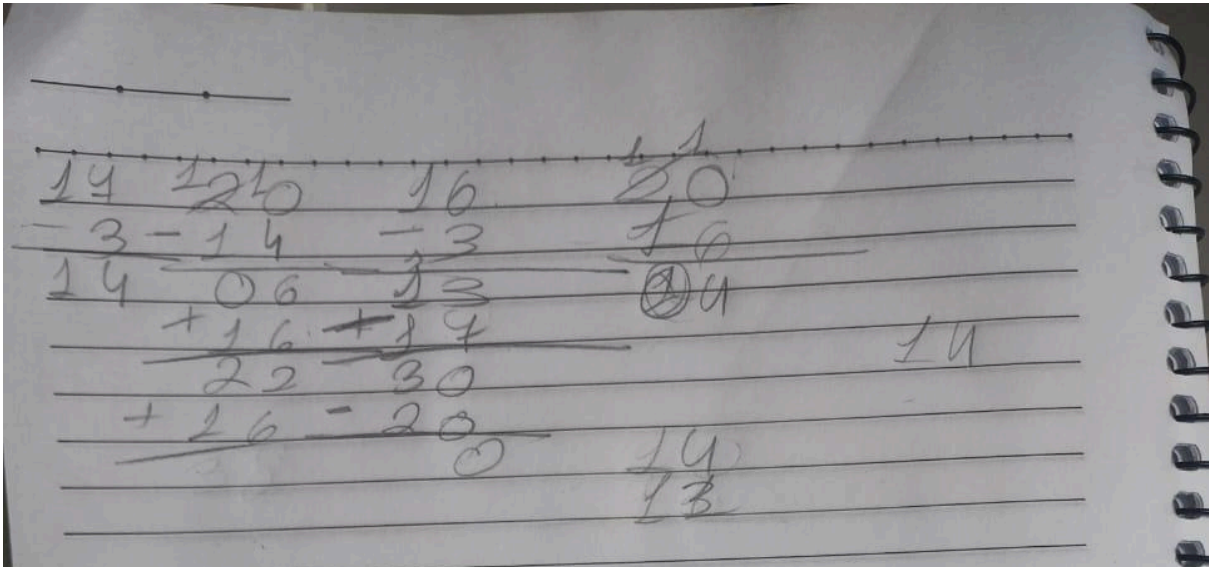 17 120 16 20
- 3 - 14 - 3 16
14 06 13 4
+ 16 + 17
22 30 14
+ 16 - 20
0 14
13